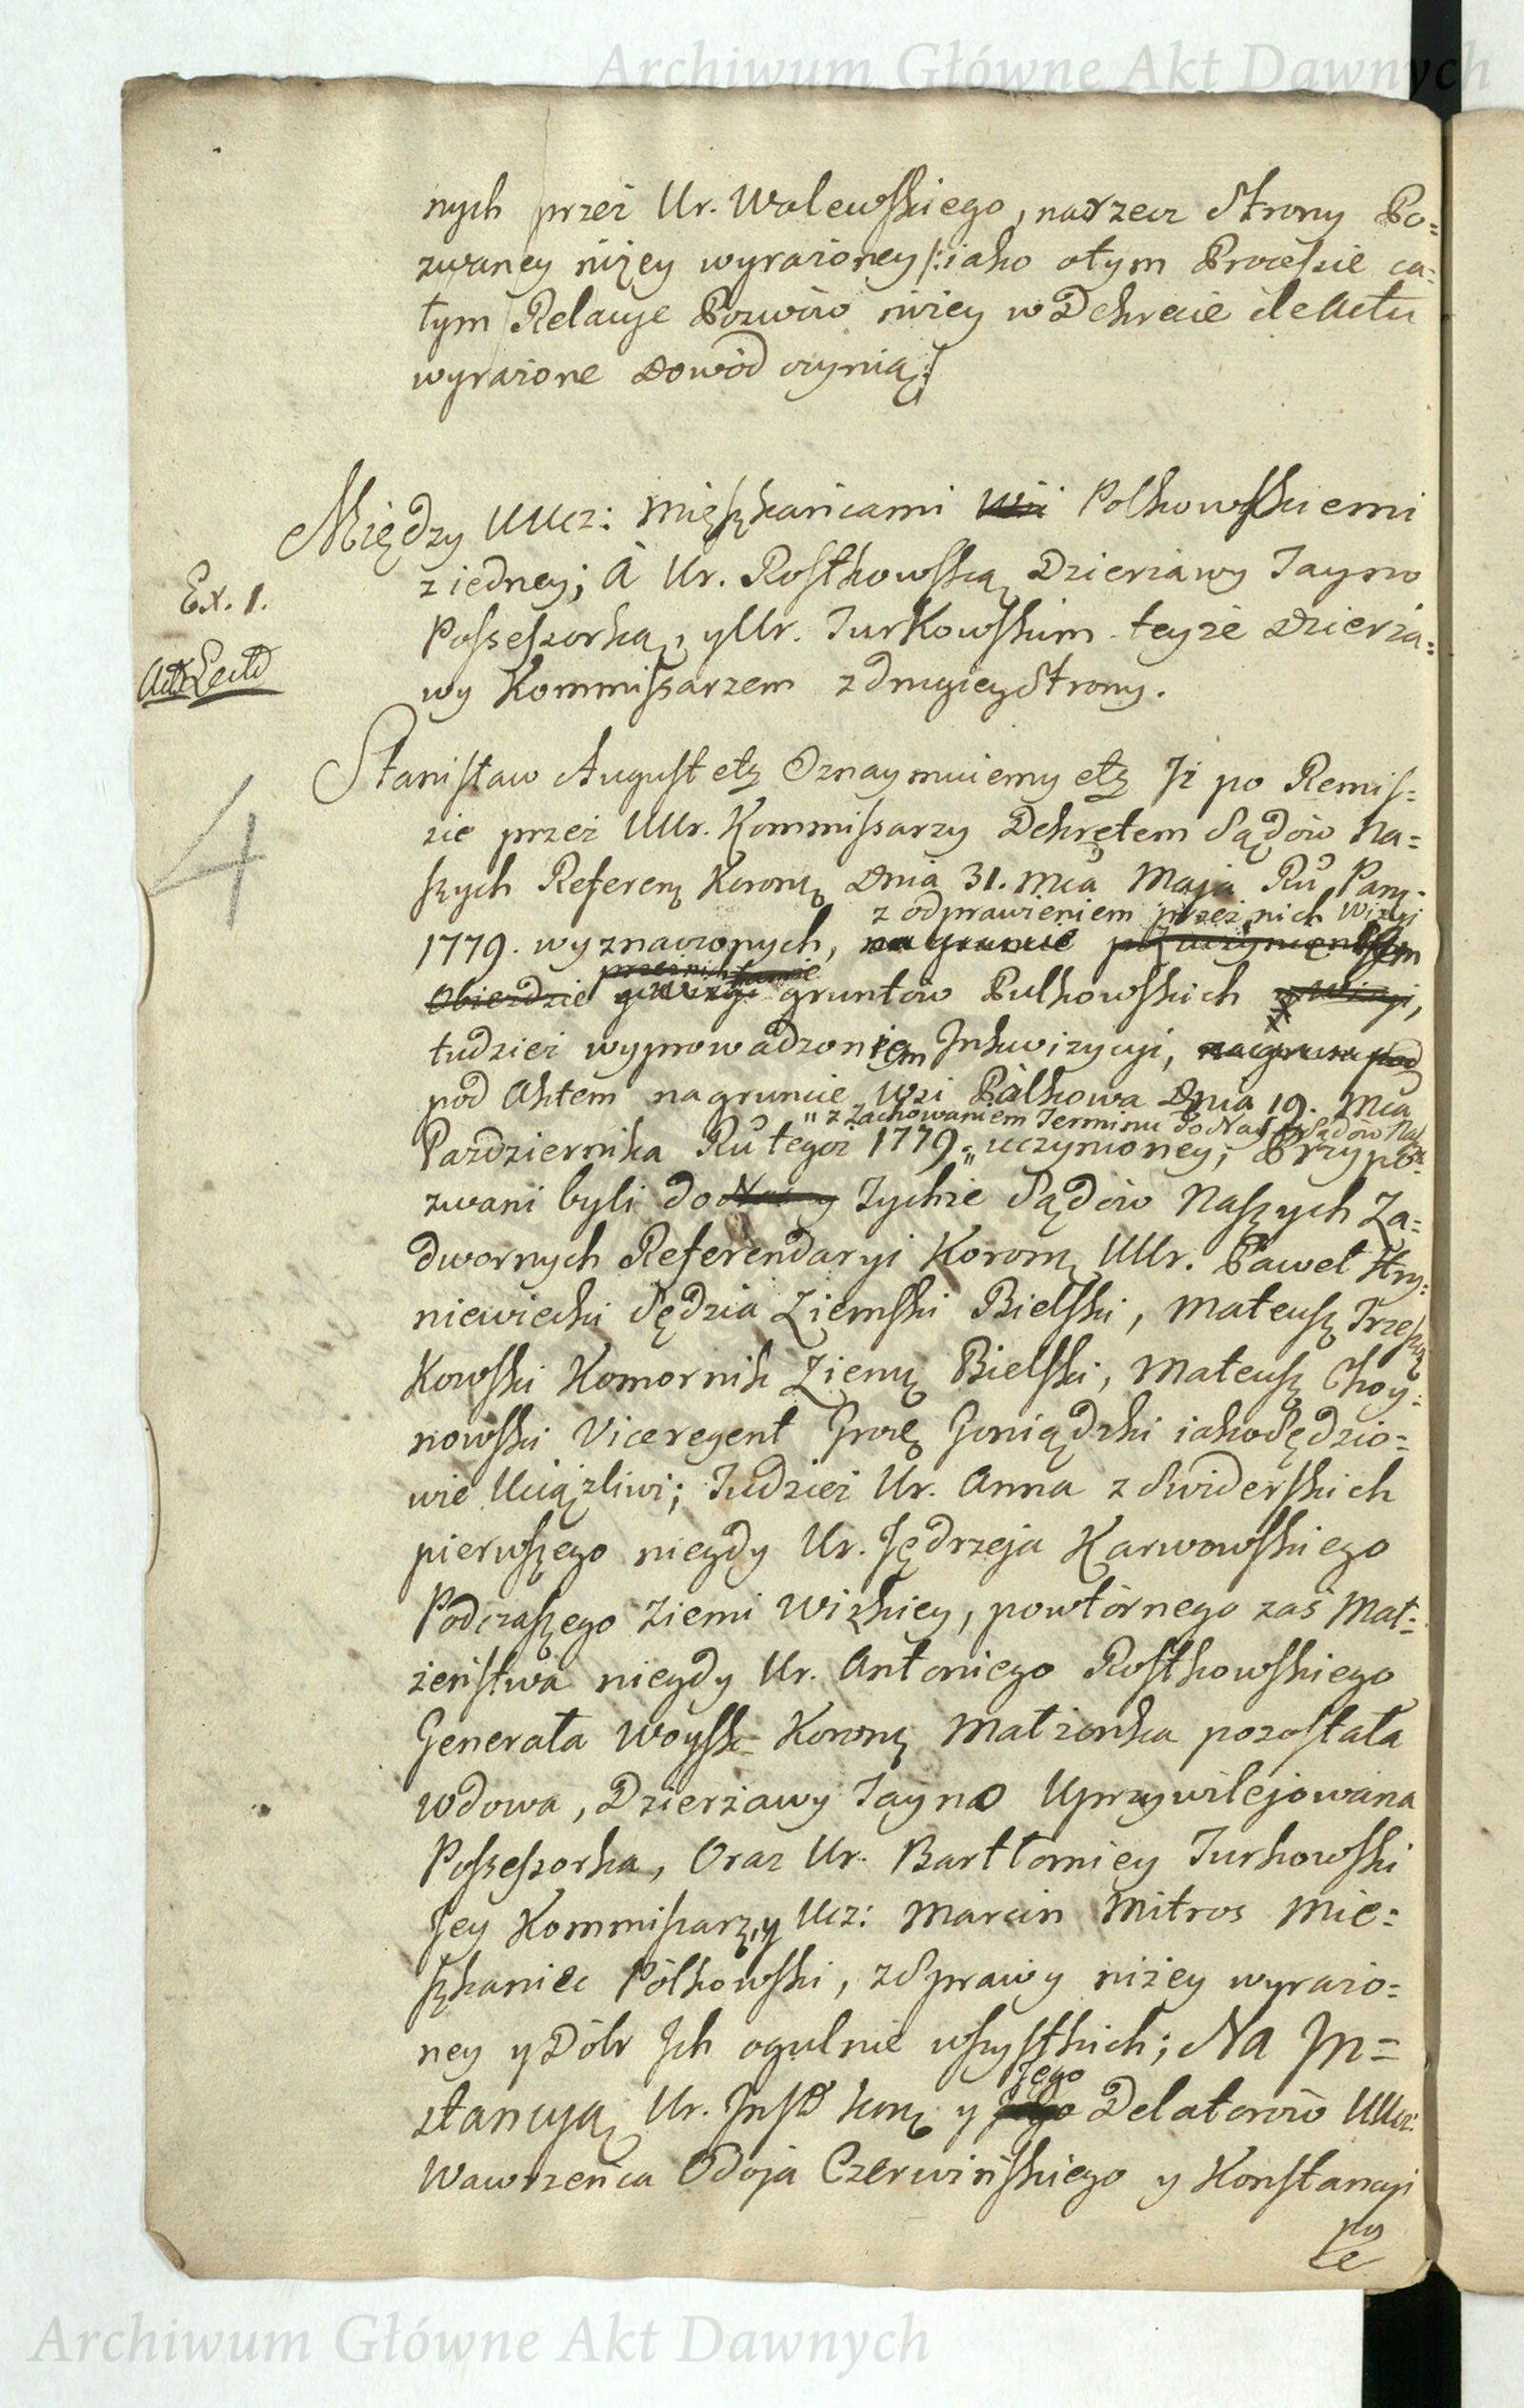 Archiwum Główne Akt Dawnych
nych przez Ur. Walewskiego, narzecz Strony Po=
zwaney niżey wyrażoney /: iako otym Processie ca=
łym Relacye Pozwów niżey w Dekrecie de Actu
wyrażone Dowód czynią :/
Między UUcz: Mięszkańcami Wsi Polkowskiemi
z iedney; A Ur. Rostkowską Dzierżawy Tayno
Ex. 1.
Possessorką, y Ur. Turkowskim teyże Dzierża=
wy Kommissarzem z drugiey Strony.
Stanisław August etz Oznaymuiemy etz Iż po Remis=
sie przez UUr. Kommissarzy Dekretem Sądów Na=
szych Referenz Koronz Dnia 31. Mca Maja Ru Panz.
z odprawieniem przez nich Wizyi
1779. wyznaczonych, na gruncie
przez nich
Obieżdzie gruntów Pulkowskich
tudzież wyprowadzoniem Inkwizycyi,
pod Aktem na gruncie Wsi Pólkowa Dnia 19. Mca
" z Zachowaniem Terminu Do Sądów
Pazdziernika Ru tegoż 1779. " uczynioney; Przypo=
zwani byli do Tychże Sądów Naszych Za=
dwornych Referendaryi Koronz UUr. Paweł Hry=
niewiecki Sędzia Ziemski Bielski, Mateusz Trzesz
Kowski Komornik Ziemz Bielski, Mateusz Choy=
nowski Viceregent Grodz Goniądzki iako Sędzio=
wie Uciążliwi; Tudzież Ur. Anna z Swiderskich
pierwszego niegdy Ur. Jędrzeja Karwowskiego
Podczaszego Ziemi Wizkiey, powtórnego zaś Mał=
żeństwa niegdy Ur. Antoniego Rostkowskiego
Generała Woysk Koronz Małżonka pozostała
Wdowa, Dzierżawy Tayno Uprzywilejowana
Possessorka, Oraz Ur. Bartłomiey Turkowski
Jey Kommisarz, y Ucz: Marcin Mitros Mie=
szkaniec Pólkowski, z Sprawy niżey wyrażo=
ney y Dóbr Ich ogulnie wszystkich; Na In=
Jego
stancyą Ur. Inst Konz y Delatorów UUcz:
Wawrzeńca Odoja Czerwińskiego y Konstancyi
Archiwum Główne Akt Dawnych